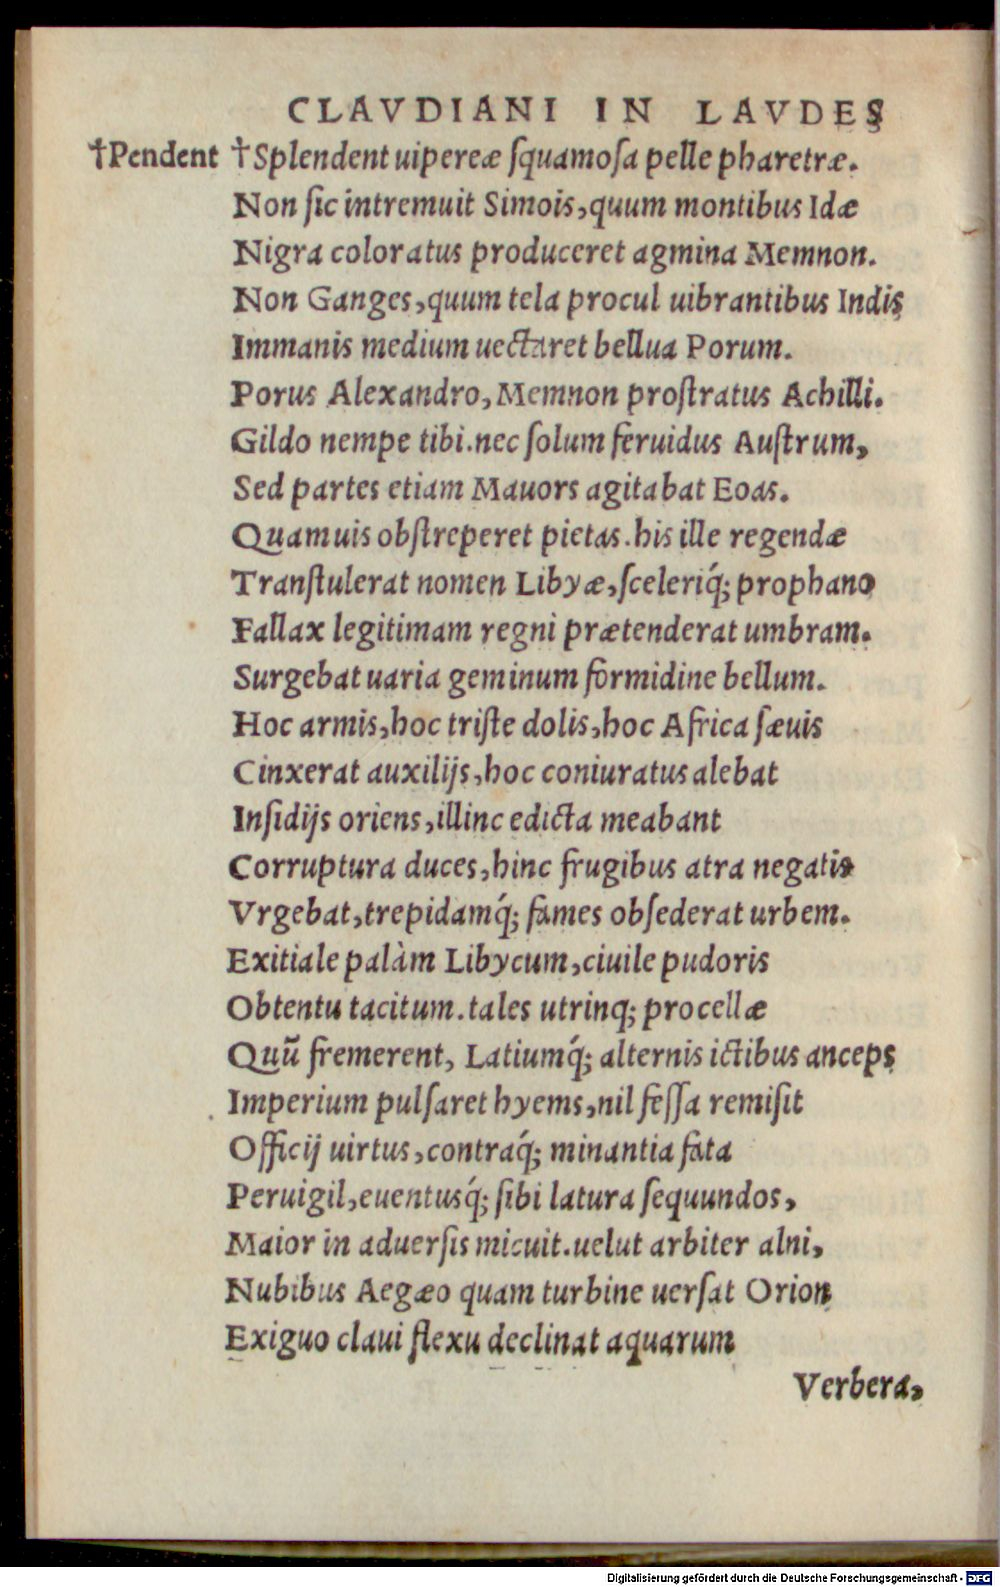 CLAVDIANI IN LAVDES
†Pendent †Splendent uipereæ ſquamoſa pelle pharetræ.
Non ſic intremuit Simois, quum montibus Idæ
Nigra coloratus produceret agmina Memnon.
Non Ganges, quum tela procul uibrantibus Indis
Immanis medium uectaret bellua Porum.
Porus Alexandro, Memnon proſtratus Achilli.
Gildo nempe tibi. nec ſolum feruidus Auſtrum,
Sed partes etiam Mauors agitabat Eoas.
Quamuis obſtreperet pietas. his ille regendæ
Tranſtulerat nomen Libyæ, ſceleriq́; prophano
Fallax legitimam regni prætenderat umbram.
Surgebat uaria geminum formidine bellum.
Hoc armis, hoc triſte dolis, hoc Africa ſæuis
Cinxerat auxilijs, hoc coniuratus alebat
Inſidijs oriens, illinc edicta meabant
Corruptura duces, hinc frugibus atra negatis
Vrgebat, trepidamq́; fames obſederat urbem.
Exitiale palàm Libycum, ciuile pudoris
Obtentu tacitum. tales utrinq; procellæ
Quū fremerent, Latiumq́; alternis ictibus anceps
Imperium pulſaret hyems, nil feſſa remiſit
Officij uirtus, contraq́; minantia fata
Peruigil, euentusq́; ſibi latura ſequundos,
Maior in aduerſis micuit. uelut arbiter alni,
Nubibus Aegæo quam turbine uerſat Orion
Exiguo claui flexu declinat aquarum
Verbera,
Digitalisierung gefördert durch die Deutsche Forschungsgemeinschaft - DFG